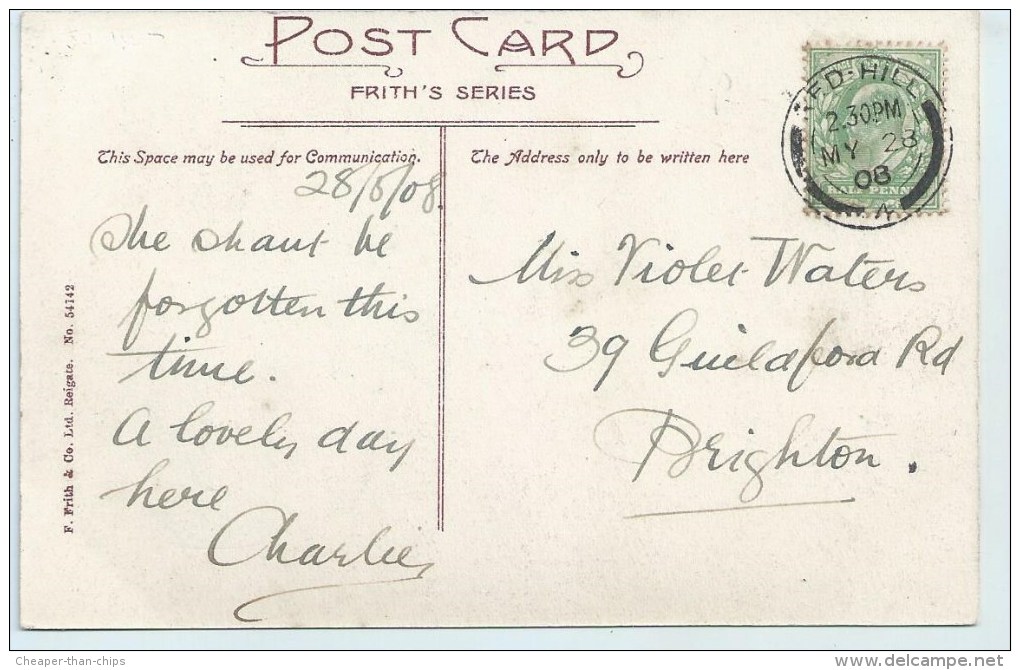 POST CARD
FRITH'S SERIES
This Space may be used for Communication.
The Address only to be written here
28/5/08.
She shant be
forgotten this
time.
A lovely day
here
Charlie
Miss Violet Waters
39 Guildford Rd
Brighton.
RED-HILL
2.30PM
MY 28
08
HALF PENNY
F. Frith & Co. Ltd. Reigate. No. 54142
Cheaper-than-chips
delcampe.net